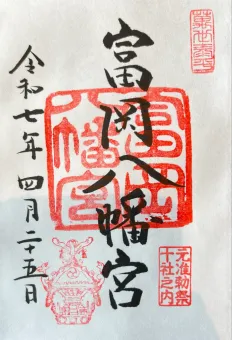 富岡八幡宮
富岡
八幡宮
元准勅祭
十社之内
令和七年 四月二十五日